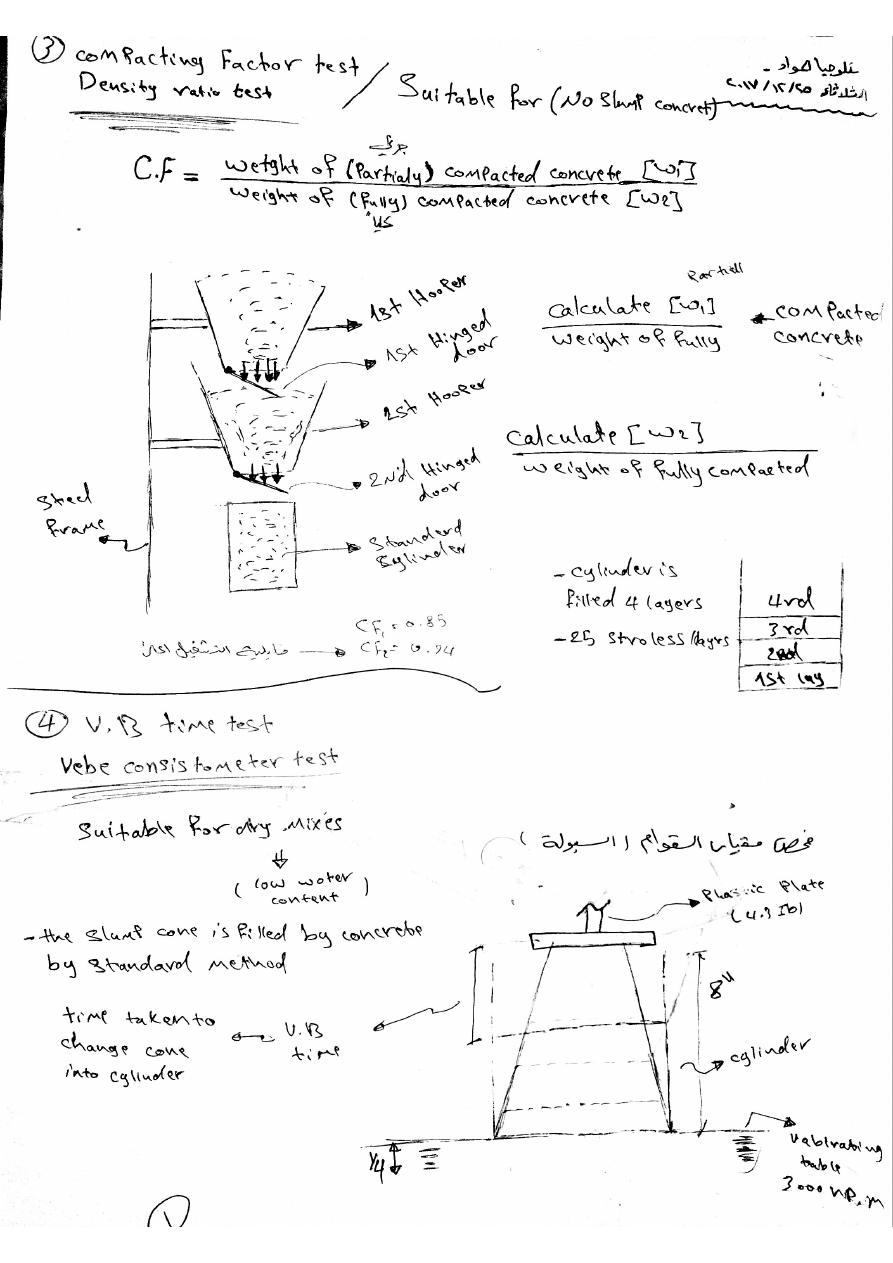 ③ Compacting Factor test
Density ratio test / Suitable for (No Slump concret)
تكلوجيا مواد -
٢٠١٧/١٢/٢٥ الثلاثاء
جزئي
C.F = weight of (Partialy) compacted concrete [w1]
weight of (fully) compacted concrete [w2]
كليا
1st Hooper
1st Hinged
door
2st Hooper
2nd Hinged
door
Standerd
Sylinder
Steel
Frame
Partiall
Calculate [w1]
weight of fully
compacted
concrete
Calculate [w2]
weight of fully compacted
- cylinder is
filled 4 layers
- 25 stroless/layrs
4rd
3rd
2nd
1st lay
CF1 = 0.85
CF2 = 0.94
④ V.B time test
Vebe consistometer test
Suitable for dry mixes
(low water
content)
فحص مقياس القوام (السيولة)
- the slump cone is filled by concrete
by standard method
time taken to
change cone
into cylinder
V.B
time
Plastic Plate
(4.3 Ib)
8"
cylinder
1/4
Vabirating
table
3000 NP.m